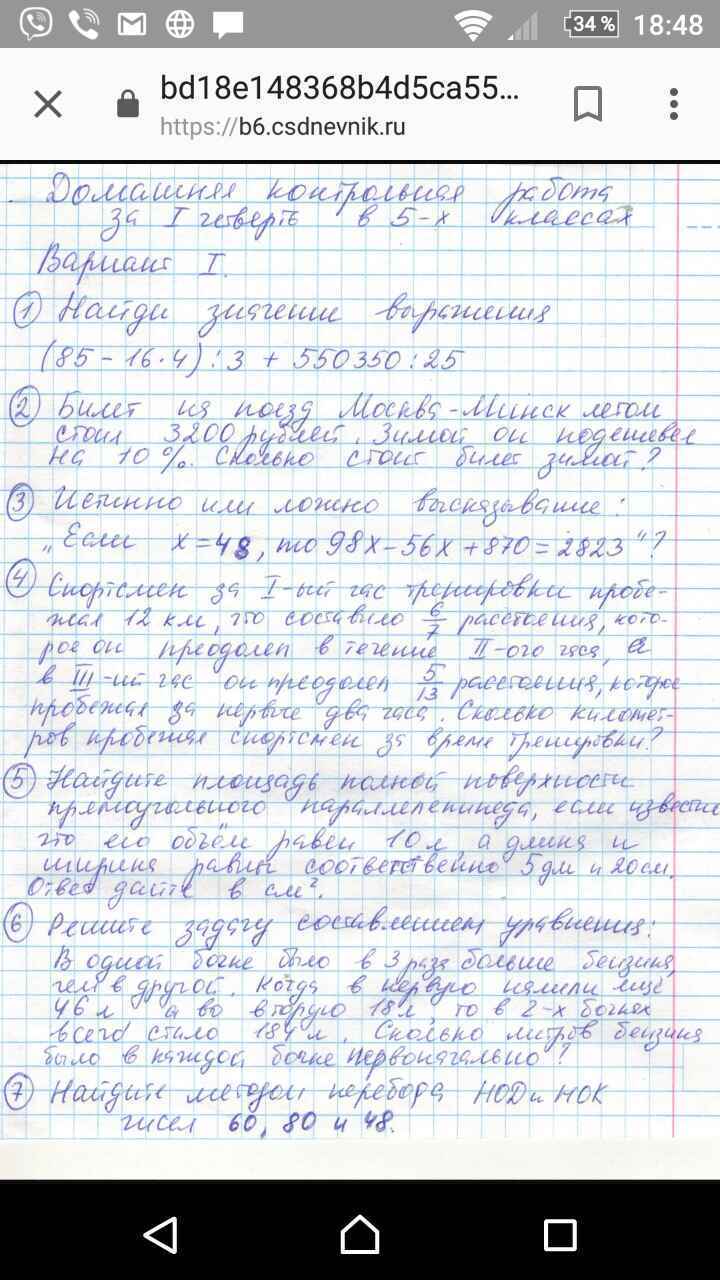 34 %
18:48
bd18e148368b4d5ca55...
https://b6.csdnevnik.ru
Домашняя контрольная работа
за I четверть в 5-х классах
Вариант I.
1 Найди значение выражения
(85 - 16·4) : 3 + 550350 : 25
2 Билет на поезд Москва-Минск летом
стоил 3200 рублей. Зимой он подешевел
на 10 %. Сколько стоит билет зимой?
3 Истинно или ложно высказывание:
„Если x = 48, то 98x - 56x + 870 = 2823"?
4 Спортсмен за I-ый час тренировки пробе-
жал 12 км, что составило 6/7 расстояния, кото-
рое он преодолел в течение II-ого часа, а
в III-ий час он преодолел 5/13 расстояния, которое
пробежал за первые два часа. Сколько километ-
ров пробежал спортсмен за время тренировки?
5 Найдите площадь полной поверхности
прямоугольного параллелепипеда, если известно
что его объём равен 10 л, а длина и
ширина равны соответственно 5 дм и 20 см.
Ответ дайте в см².
6 Решите задачу составлением уравнения:
В одной бочке было в 3 раза больше бензина,
чем в другой. Когда в первую налили ещё
46 л а во вторую 18 л, то в 2-х бочках
всего стало 184 л. Сколько литров бензина
было в каждой бочке первоначально?
7 Найдите методом перебора НОД и НОК
чисел 60, 80 и 48.